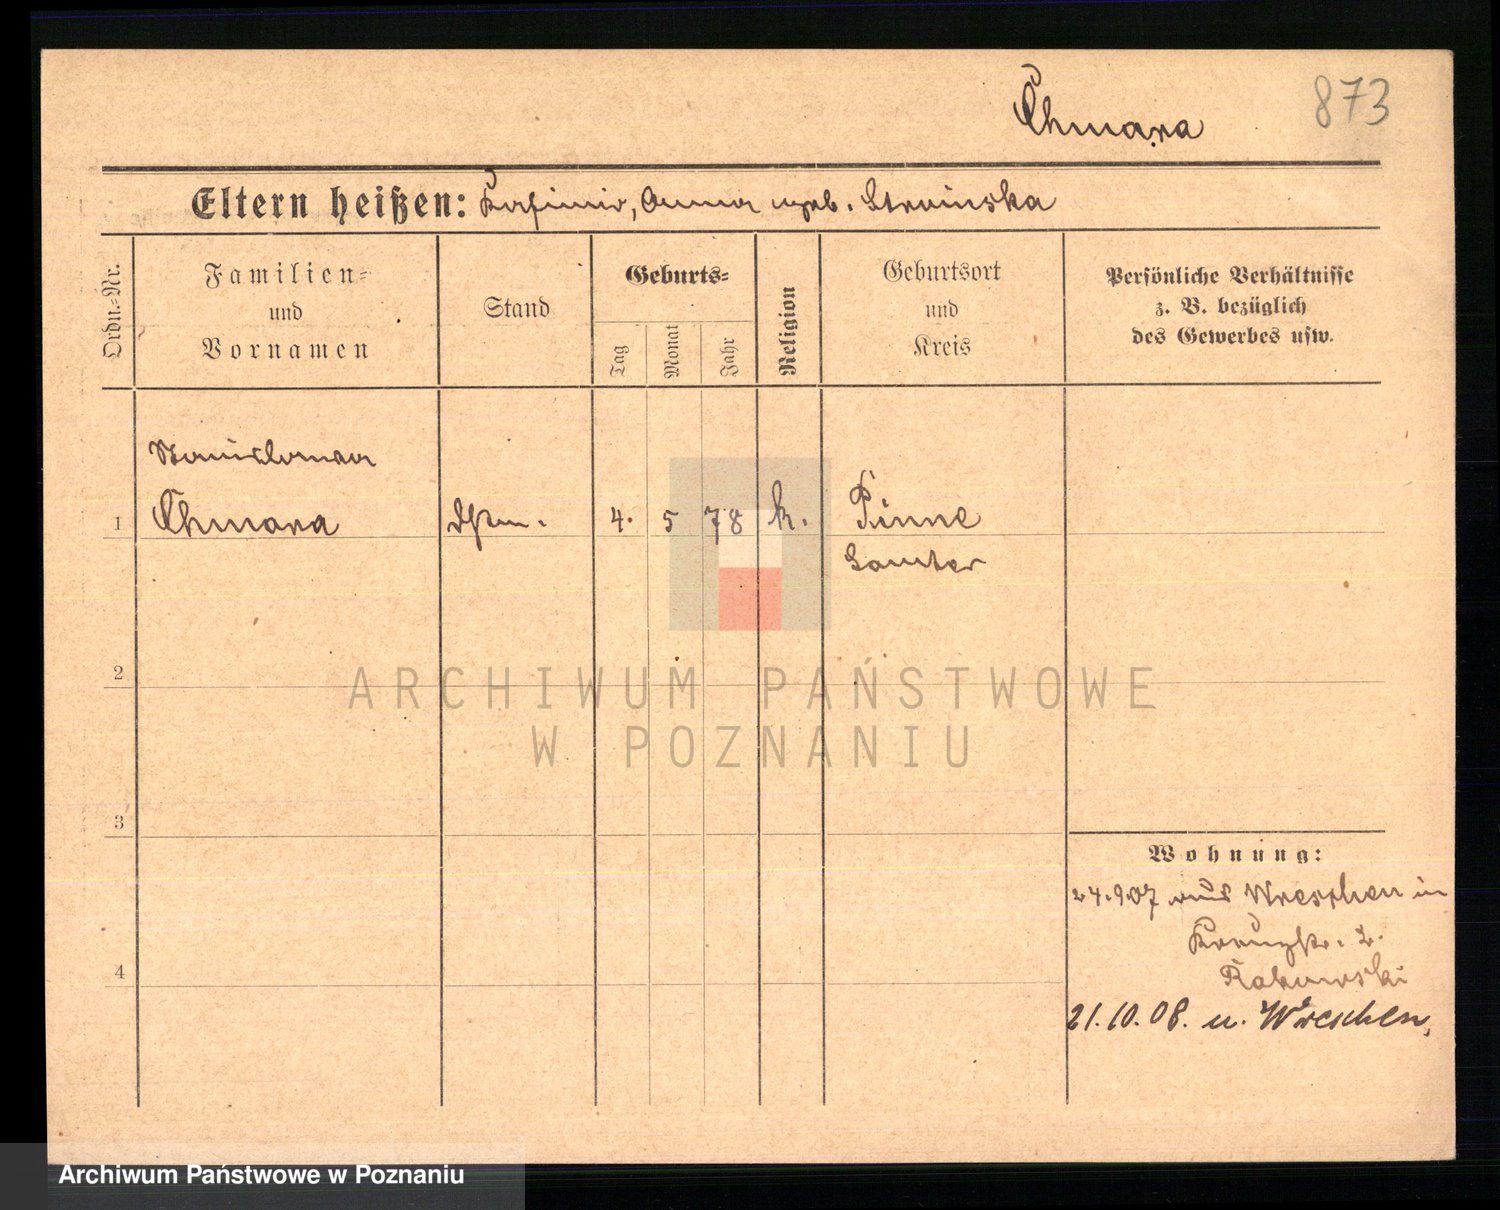 Chmara
873
Eltern heißen: Kasimir, Anna geb. Stroinska
Ordn.=Nr.
Familien=
und
Vornamen
Stand
Geburts=
Tag
Monat
Jahr
Religion
Geburtsort
und
Kreis
Persönliche Verhältnisse
z. B. bezüglich
des Gewerbes usw.
Stanislawa
1 Chmara 4. 5 78 k. Pinne
Samter
2
ARCHIWUM PAŃSTWOWE
W POZNANIU
3
Wohnung:
24.9.07 aus Wreschen in
Kreuzstr. 2.
Rakowski
4
21.10.08. n. Wreschen,
Archiwum Państwowe w Poznaniu